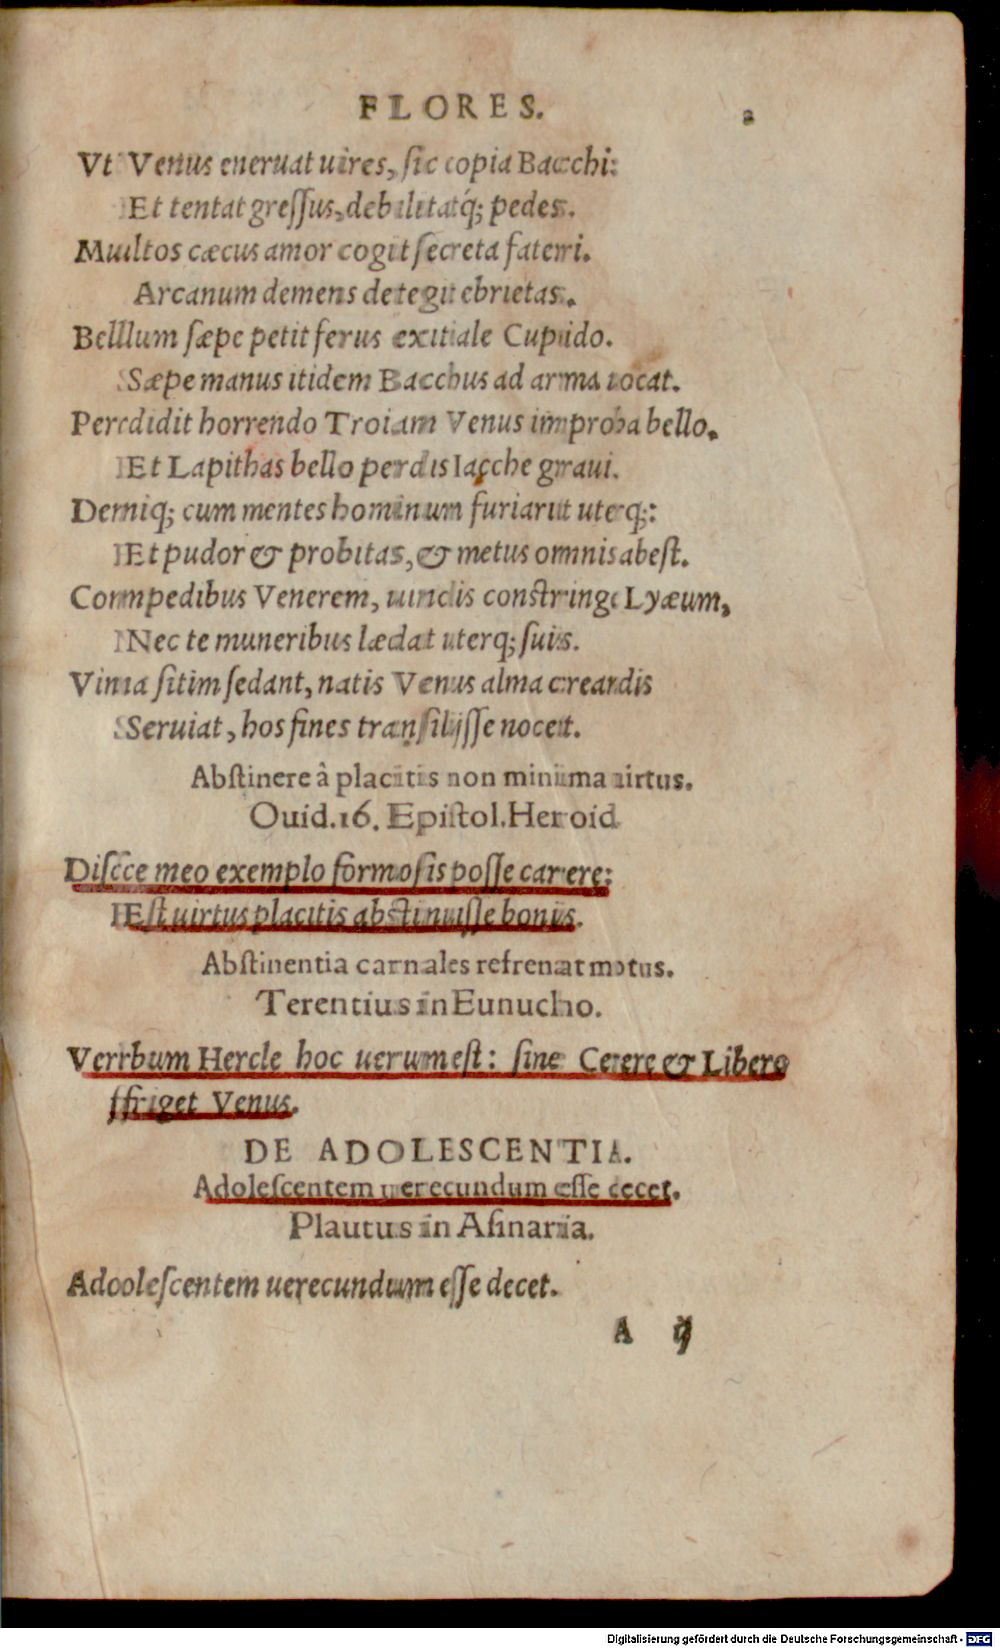 FLORES. 2
Vt Venus eneruat uires, sic copia Bacchi:
Et tentat gressus, debilitatq́; pedes.
Multos cæcus amor cogit secreta fateri.
Arcanum demens detegit ebrietas.
Bellum sæpe petit ferus exitiale Cupido.
Sæpe manus itidem Bacchus ad arma uocat.
Perdidit horrendo Troiam Venus improba bello.
Et Lapithas bello perdis Iacche graui.
Deniq; cum mentes hominum furiarit uterq;:
Et pudor & probitas, & metus omnis abest.
Compedibus Venerem, uinclis constringe Lyæum,
Nec te muneribus lædat uterq; suis.
Vina sitim sedant, natis Venus alma creandis
Seruiat, hos fines transilijsse nocet.
Abstinere à placitis non minima uirtus.
Ouid. 16. Epistol. Heroid
Disce meo exemplo formosis posse carere:
Est uirtus placitis abstinuisse bonis.
Abstinentia carnales refrenat motus.
Terentius in Eunucho.
Verbum Hercle hoc uerum est: sine Cerere & Libero
friget Venus.
DE ADOLESCENTIA.
Adolescentem uerecundum esse decet.
Plautus in Asinaria.
Adolescentem uerecundum esse decet.
A ij
Digitalisierung gefördert durch die Deutsche Forschungsgemeinschaft - DFG